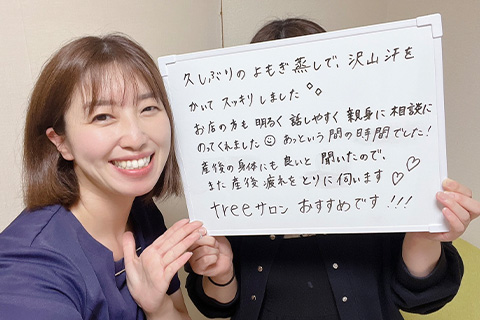 久しぶりのよもぎ蒸しで、沢山汗を
かいてスッキリしました
お店の方も明るく話しやすく親身に相談に
のってくれました☺あっという間の時間でした!
産後の身体にも良いと聞いたので、
また産後疲れをとりに伺います♡♡
treeサロンおすすめです!!!